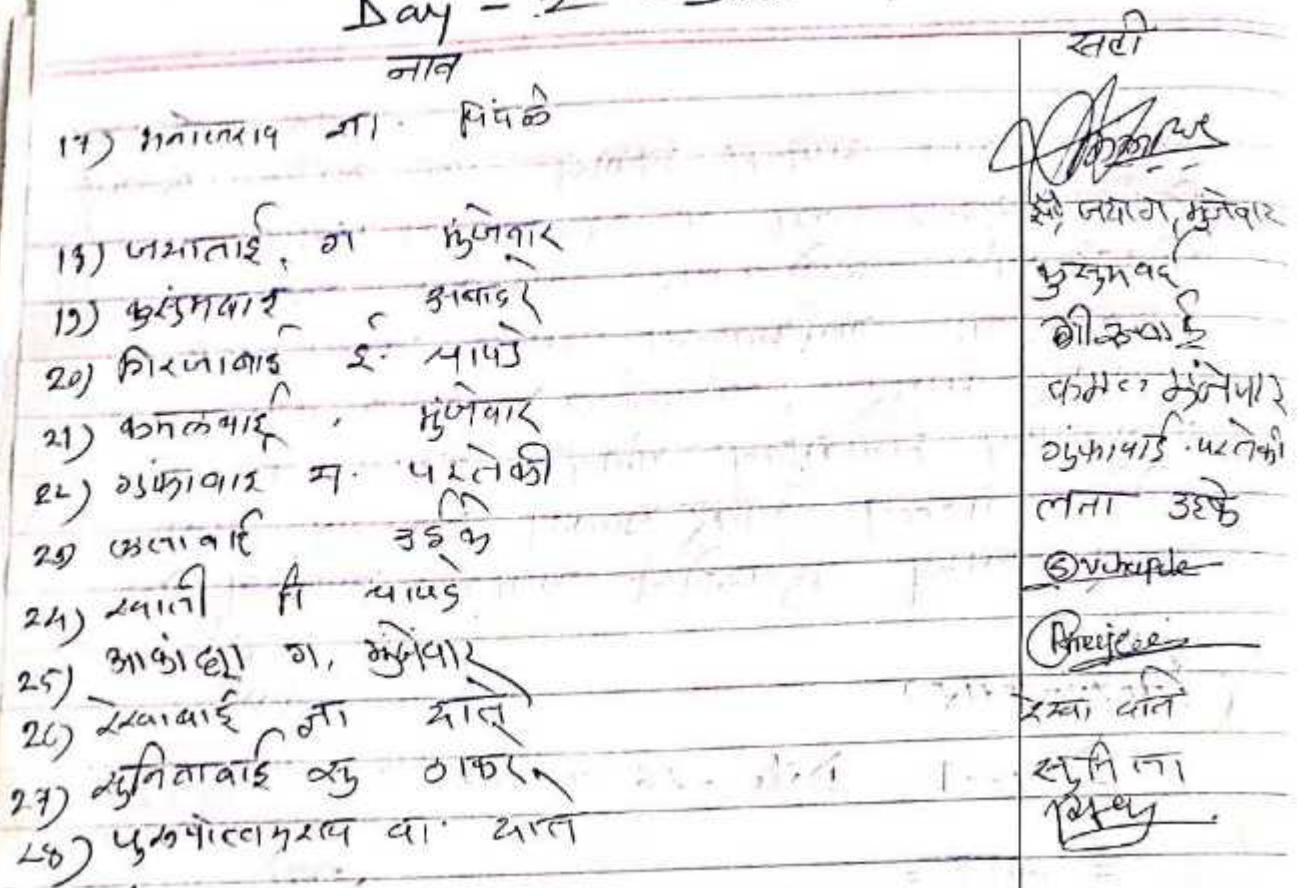 Day - 2
नाव सही
17) मनोजराव ना. पिंपळे
18) जयाताई, ग मुंजेवार सौ, जया ग, मुंजेवार
19) कुसुमबाई कुसुमबाई
20) गिरजाबाई ई. चापडे
21) कमलबाई, मुंजेवार कमल मुंजेवार
22) गुंफाबाई म. परतेकी गुंफाबाई. परतेकी
23) लताबाई उईके लता उइके
24) स्वाती वि चापडे
25) आकांक्षा ग, मुंजेवार
26) रेखाबाई ना याते रेखा याते
27) सुनिताबाई सु ठाकरे सुनिता
28) पुरुषोत्तमराव वा. याते